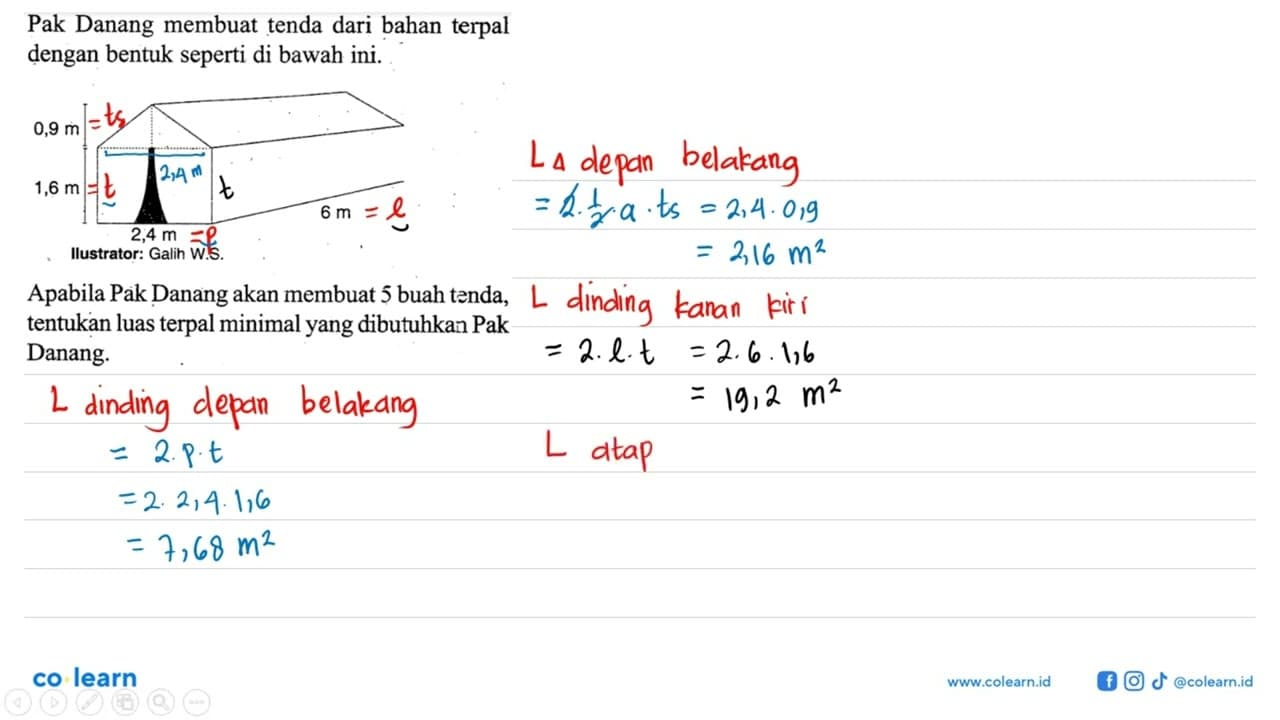 Pak Danang membuat tenda dari bahan terpal
dengan bentuk seperti di bawah ini.
0,9 m = ts
1,6 m = t
2,4 m
t
6 m = l
2,4 m = p
Ilustrator: Galih W.S.
Apabila Pak Danang akan membuat 5 buah tenda,
tentukan luas terpal minimal yang dibutuhkan Pak
Danang.
L dinding depan belakang
= 2.p.t
= 2. 2,4. 1,6
= 7,68 m²
L Δ depan belakang
= 2. 1/2. a . ts = 2,4. 0,9
= 2,16 m²
L dinding kanan kiri
= 2. l. t = 2. 6. 1,6
= 19,2 m²
L atap
co learn
www.colearn.id
@colearn.id